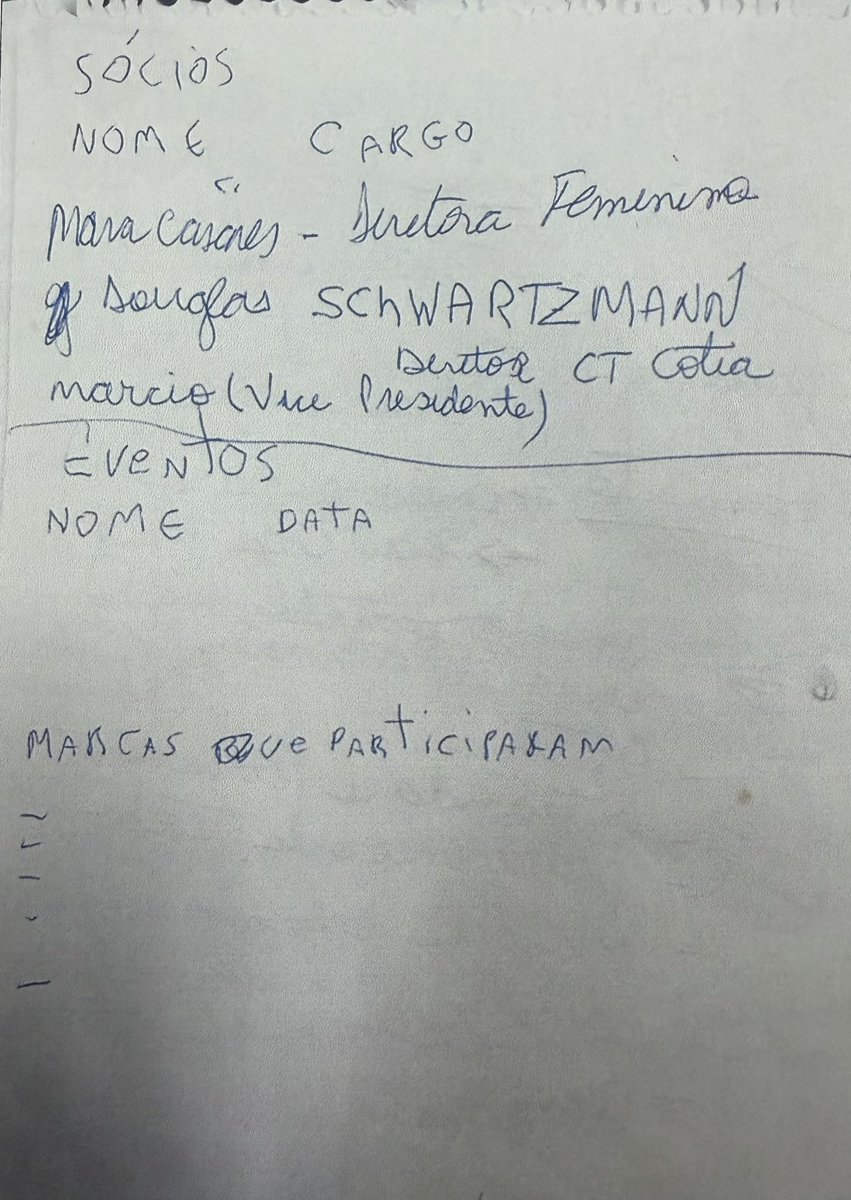 SÓCIOS
NOME CARGO
Mara Casares - Diretora Feminino
Douglas SCHWARTZMANN
Diretor CT Cotia
marcio (Vice Presidente)
EVENTOS
NOME DATA
MARCAS QUE PARTICIPARAM